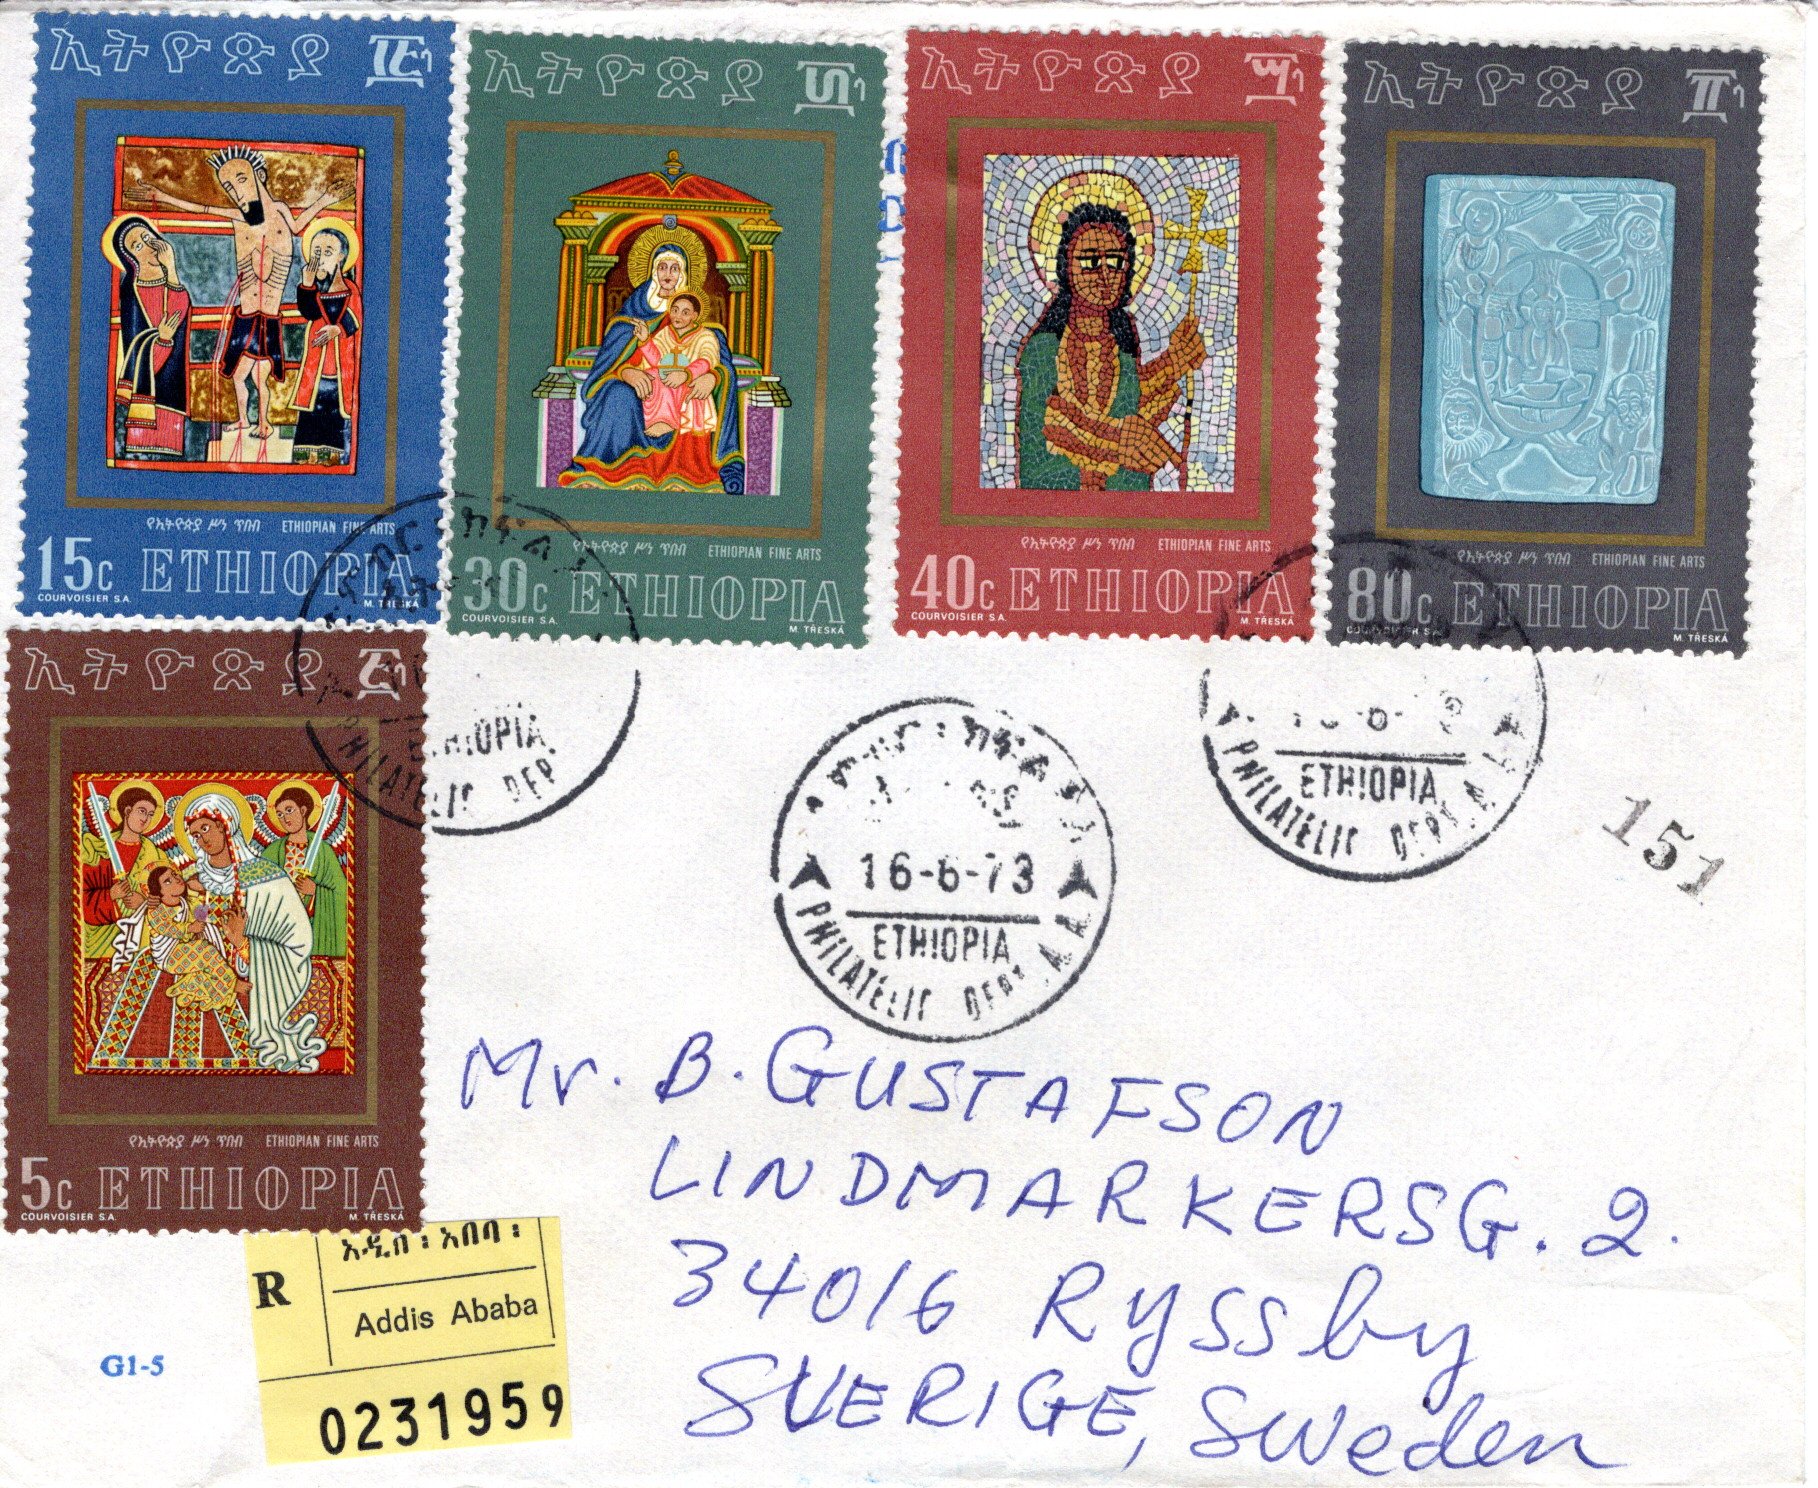 ኢትዮጵያ ፲፭ሣ
የኢትዮጵያ ሥነ ጥበብ ETHIOPIAN FINE ARTS
15c ETHIOPIA
COURVOISIER S.A. M. TŘESKÁ
ኢትዮጵያ ፴ሣ
የኢትዮጵያ ሥነ ጥበብ ETHIOPIAN FINE ARTS
30c ETHIOPIA
COURVOISIER S.A. M. TŘESKÁ
ኢትዮጵያ ፵ሣ
የኢትዮጵያ ሥነ ጥበብ ETHIOPIAN FINE ARTS
40c ETHIOPIA
COURVOISIER S.A. M. TŘESKÁ
ኢትዮጵያ ፹ሣ
የኢትዮጵያ ሥነ ጥበብ ETHIOPIAN FINE ARTS
80c ETHIOPIA
COURVOISIER S.A. M. TŘESKÁ
ኢትዮጵያ ፭ሣ
የኢትዮጵያ ሥነ ጥበብ ETHIOPIAN FINE ARTS
5c ETHIOPIA
COURVOISIER S.A. M. TŘESKÁ
ETHIOPIA
PHILATELIC DEP
16-6-73
ETHIOPIA
PHILATELIC DEPT. A.A.
ETHIOPIA
PHILATELIC DEPT. A.A.
151
Mr. B. GUSTAFSON
LINDMARKERSG. 2.
34016 Ryssby
SVERIGE, Sweden
R
አዲስ ፡ አበባ ፡
Addis Ababa
0231959
G1-5